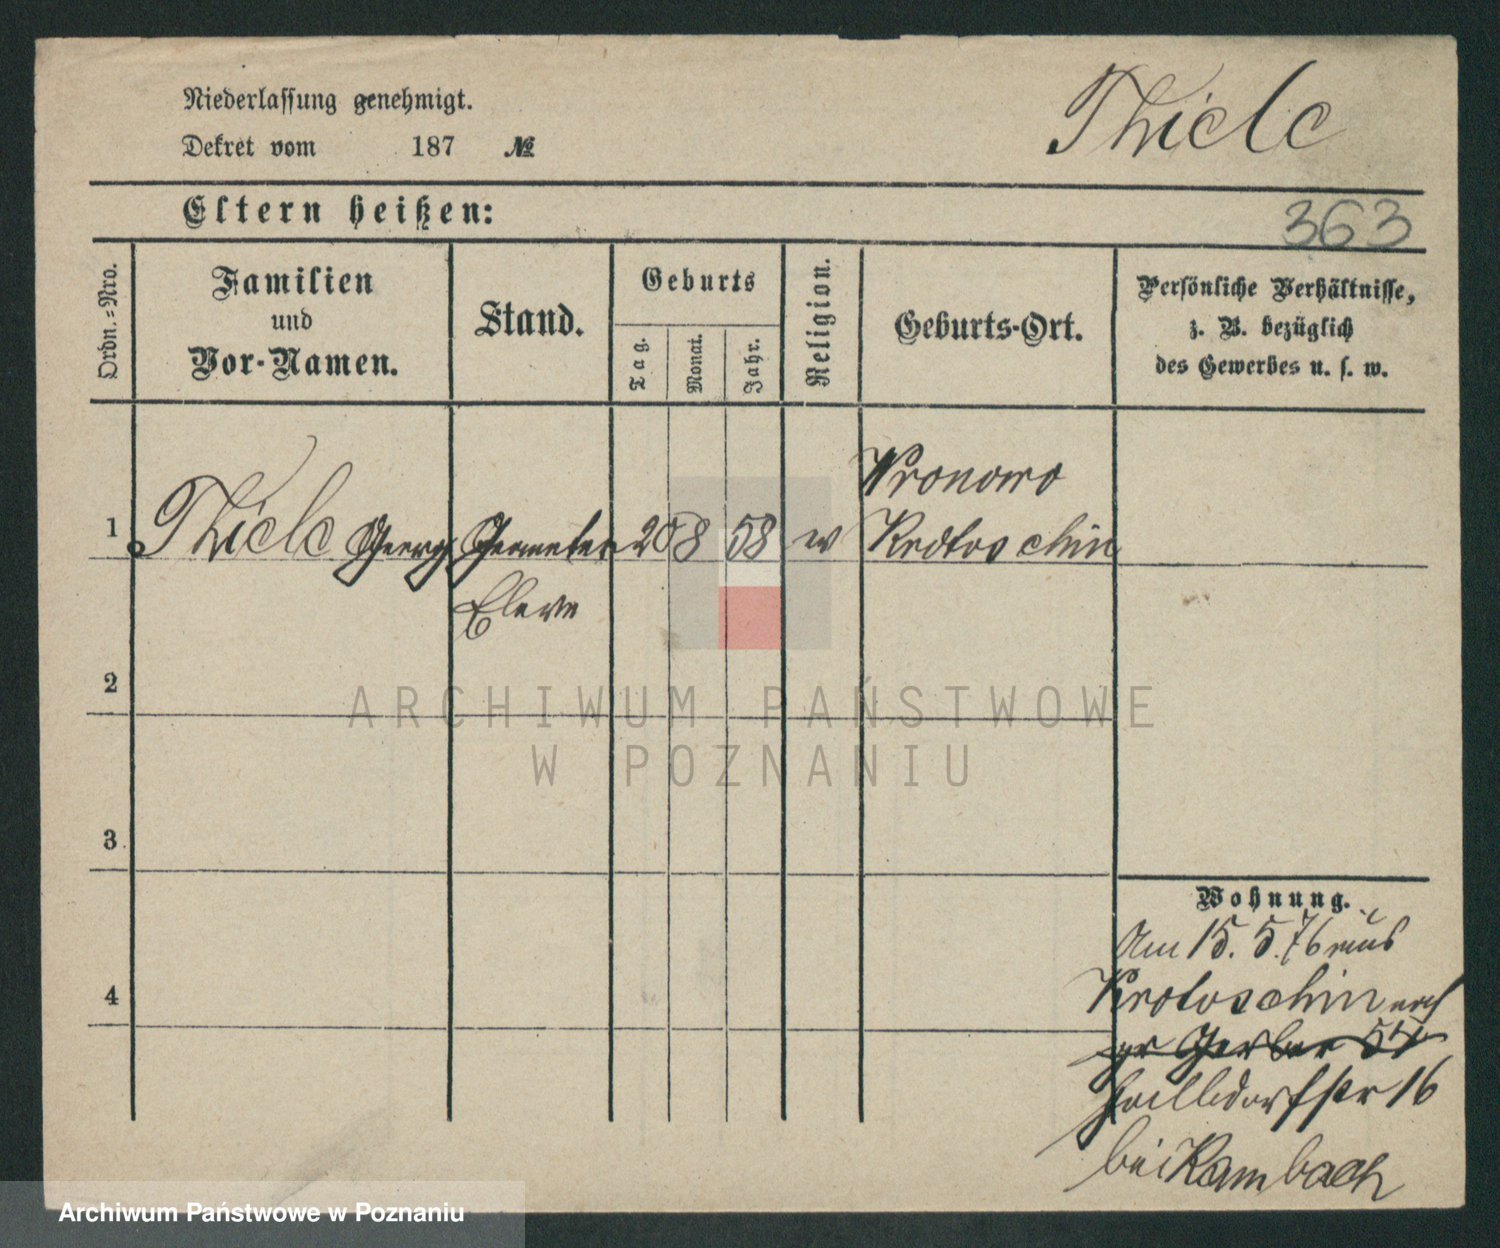 Niederlassung genehmigt.
Dekret vom 187 №
Thiele
Eltern heißen:
363
Ordn.-Nro.
Familien
und
Vor-Namen.
Stand.
Geburts
Tag.
Monat.
Jahr.
Religion.
Geburts-Ort.
Persönliche Verhältnisse,
z. B. bezüglich
des Gewerbes u. s. w.
Wronowo
1 Thiele Georg Geometer 20 8 58 w Krotoschin
Eleve
2
ARCHIWUM PAŃSTWOWE
W POZNANIU
3
Wohnung.
Am 15. 5. 76 aus
4
Krotoschin nach
gr Gerber 54
Halldorfstr 16
bei Rambach
Archiwum Państwowe w Poznaniu